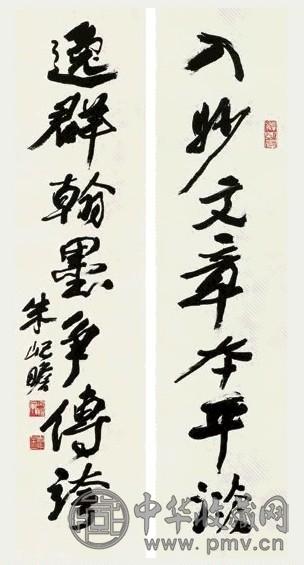 入妙文章本平澹
逸群翰墨争傳誇
朱屺瞻
中华收藏网
www.pmv.cn